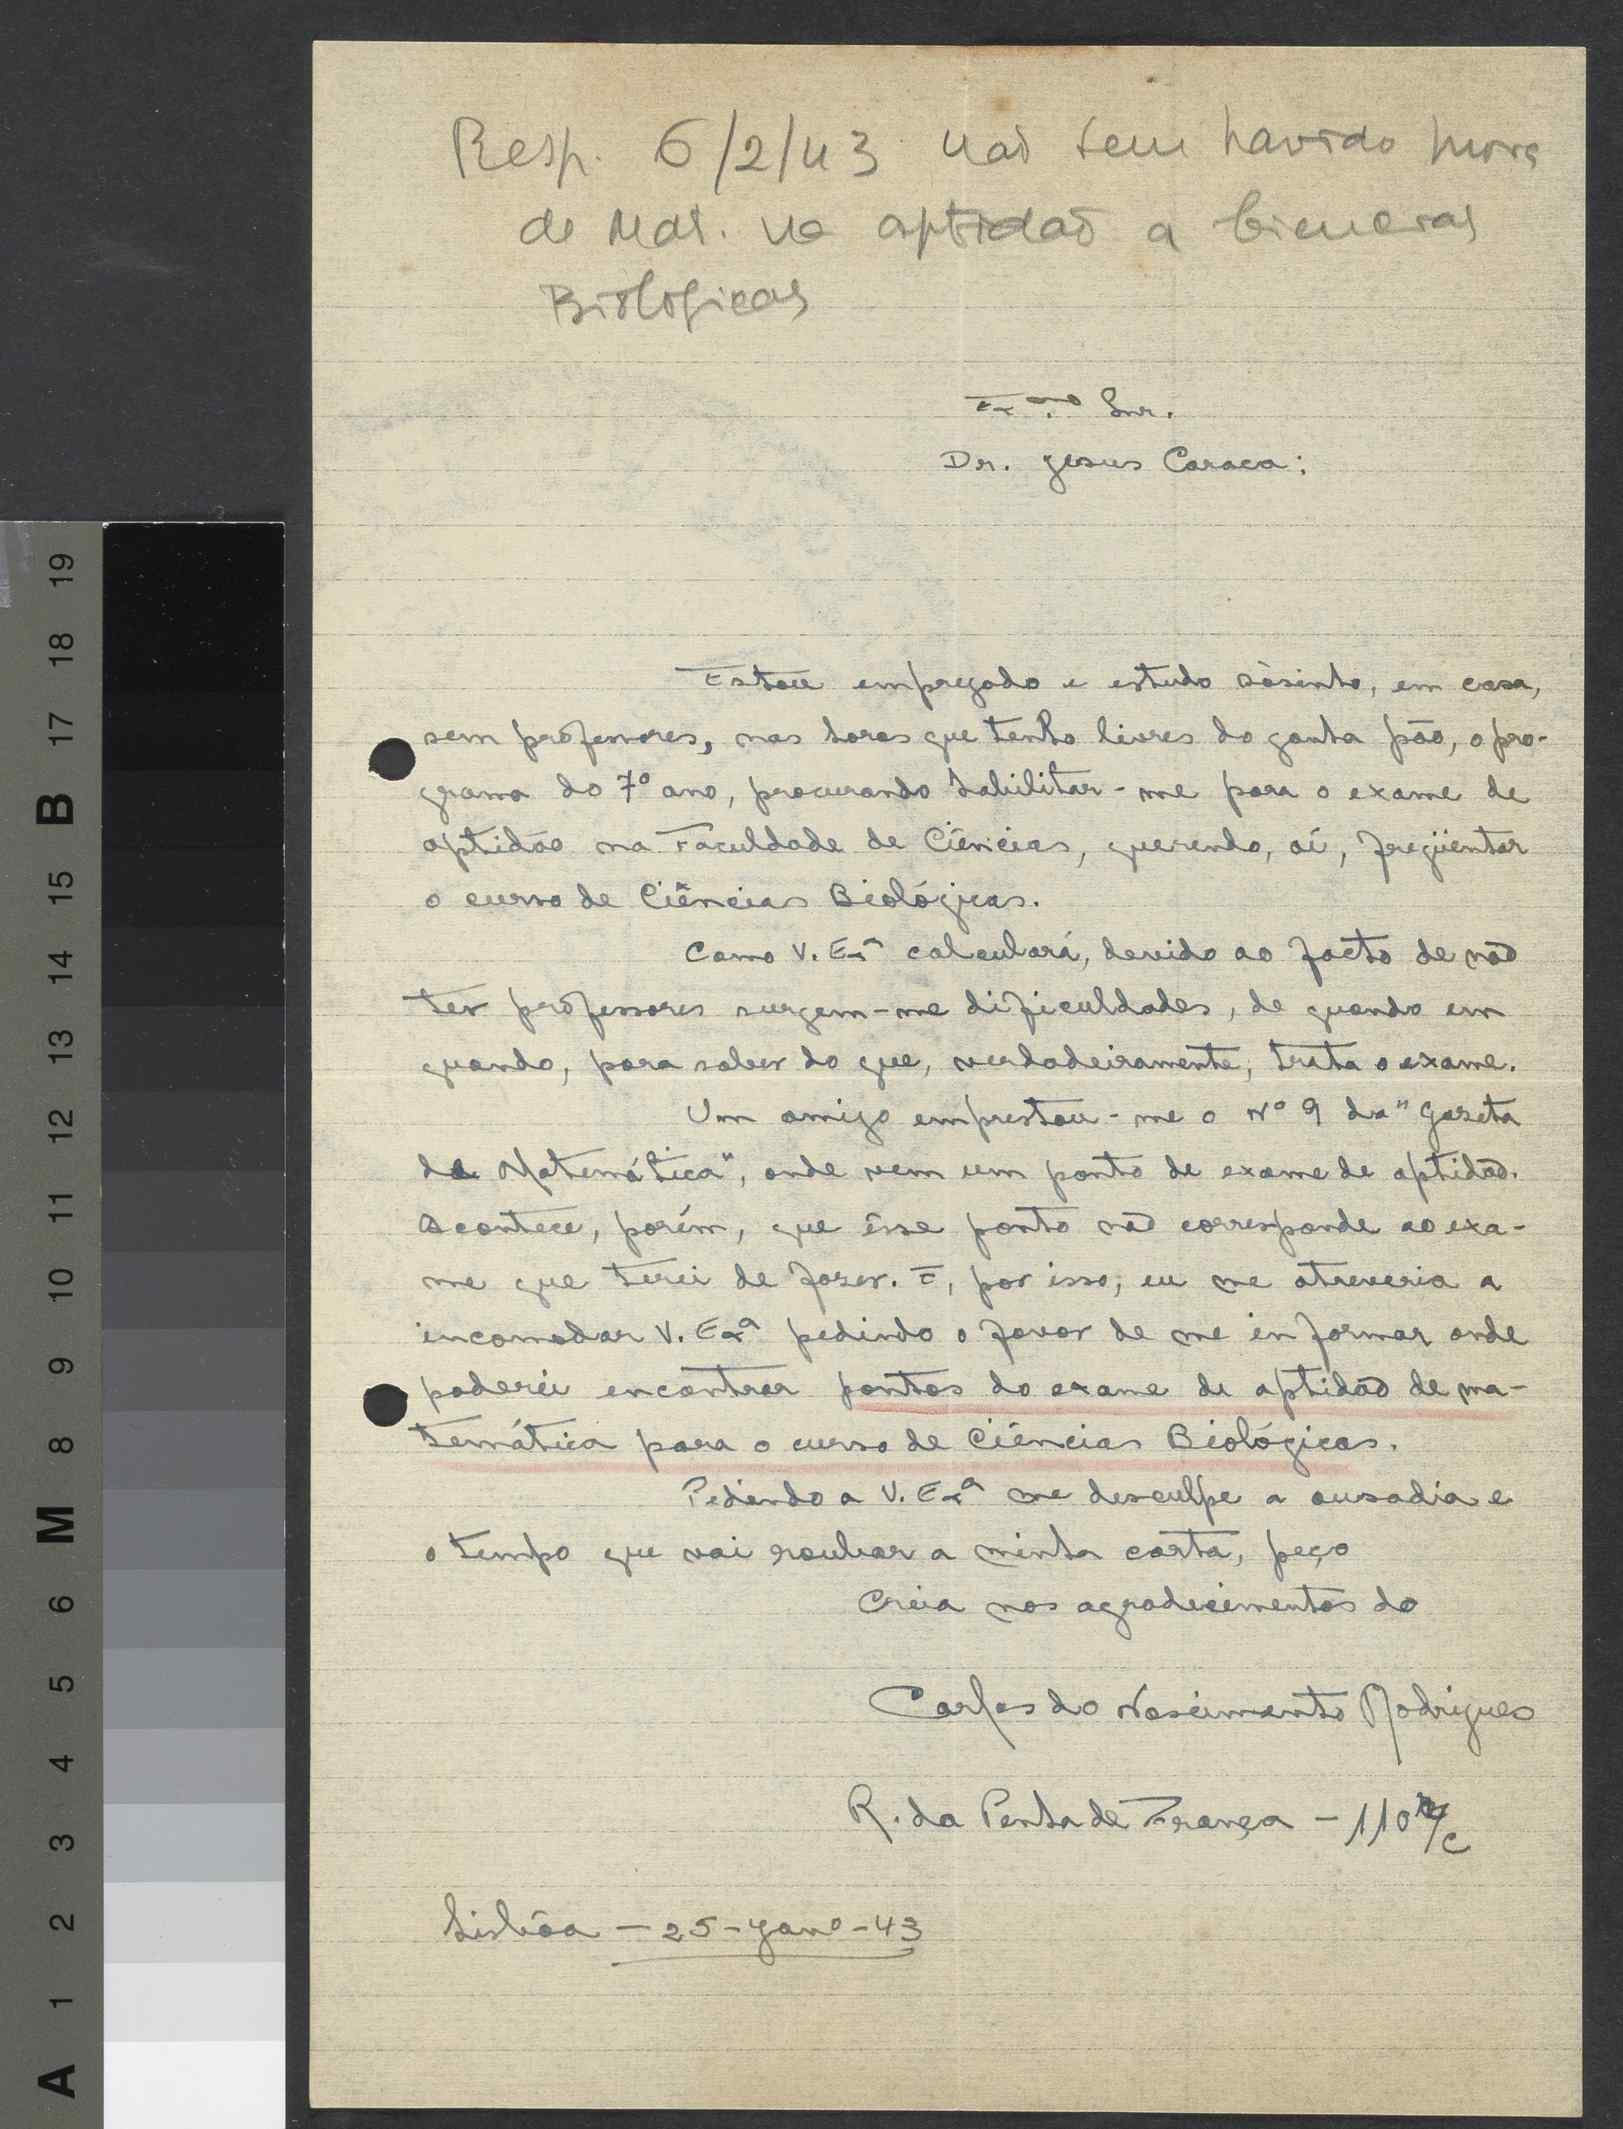 Resp. 6/2/43 não tem havido prova
de Mat. na aptidão a Ciencias
Biologicas
Ex.mo Snr.
Dr. Jesus Caraca:
Estou empregado e estudo sòsinho, em casa,
sem professores, nas horas que tenho livres do ganha pão, o pro-
grama do 7º ano, procurando habilitar-me para o exame de
aptidão na Faculdade de Ciências, querendo, aí, freqüentar
o curso de Ciências Biológicas.
Como V. Exª calculará, devido ao facto de não
ter professores surgem-me dificuldades, de quando em
quando, para saber do que, verdadeiramente, trata o exame.
Um amigo emprestou-me o Nº 9 da "Gazeta
de Matemática", onde vem um ponto de exame de aptidão.
Acontece, porém, que êsse ponto não corresponde ao exa-
me que terei de fazer. E, por isso, eu me atreveria a
incomodar V. Exª pedindo o favor de me informar onde
poderei encontrar pontos do exame de aptidão de ma-
temática para o curso de Ciências Biológicas.
Pedindo a V. Exª me desculpe a ousadia e
o tempo que vai roubar a minha carta, peço
Creia nos agradecimentos do
Carlos do Nascimento Rodrigues
R. da Penha de França - 110 r/c
Lisbôa - 25-Janº-43
19
18
17
B
15
14
13
12
11
10
9
8
M
6
5
4
3
2
1
A